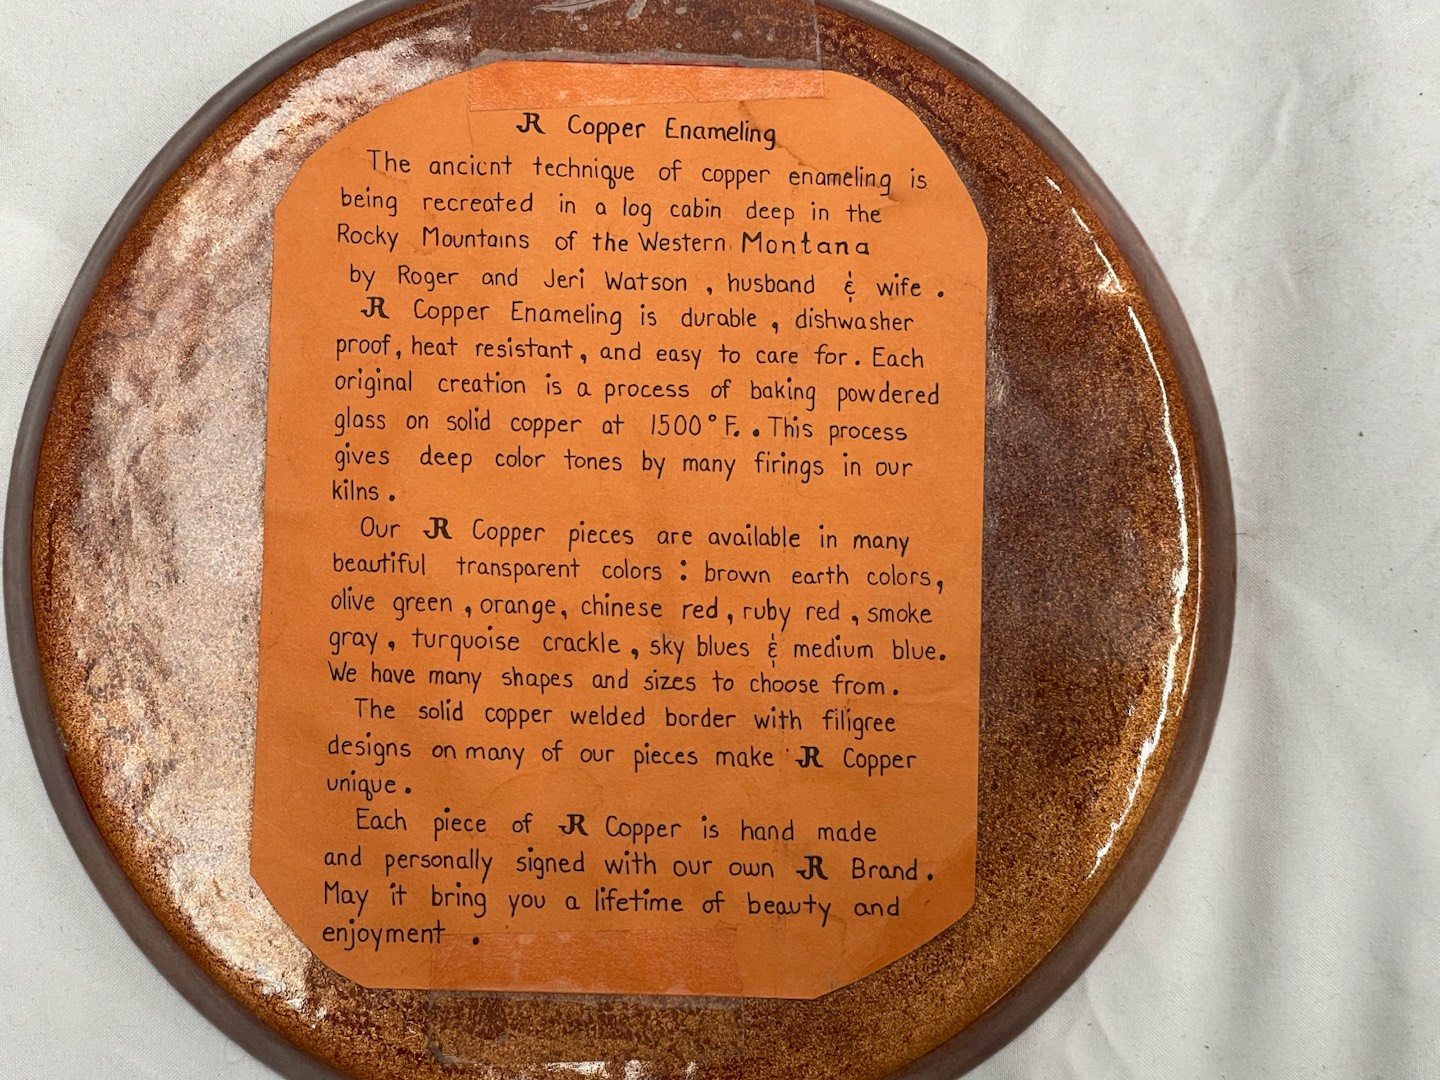 JR Copper Enameling
The ancient technique of copper enameling is
being recreated in a log cabin deep in the
Rocky Mountains of the Western Montana
by Roger and Jeri Watson , husband & wife .
JR Copper Enameling is durable , dishwasher
proof, heat resistant, and easy to care for. Each
original creation is a process of baking powdered
glass on solid copper at 1500°F. . This process
gives deep color tones by many firings in our
kilns .
Our JR Copper pieces are available in many
beautiful transparent colors : brown earth colors,
olive green , orange, chinese red, ruby red , smoke
gray, turquoise crackle , sky blues & medium blue.
We have many shapes and sizes to choose from.
The solid copper welded border with filigree
designs on many of our pieces make JR Copper
unique .
Each piece of JR Copper is hand made
and personally signed with our own JR Brand .
May it bring you a lifetime of beauty and
enjoyment .